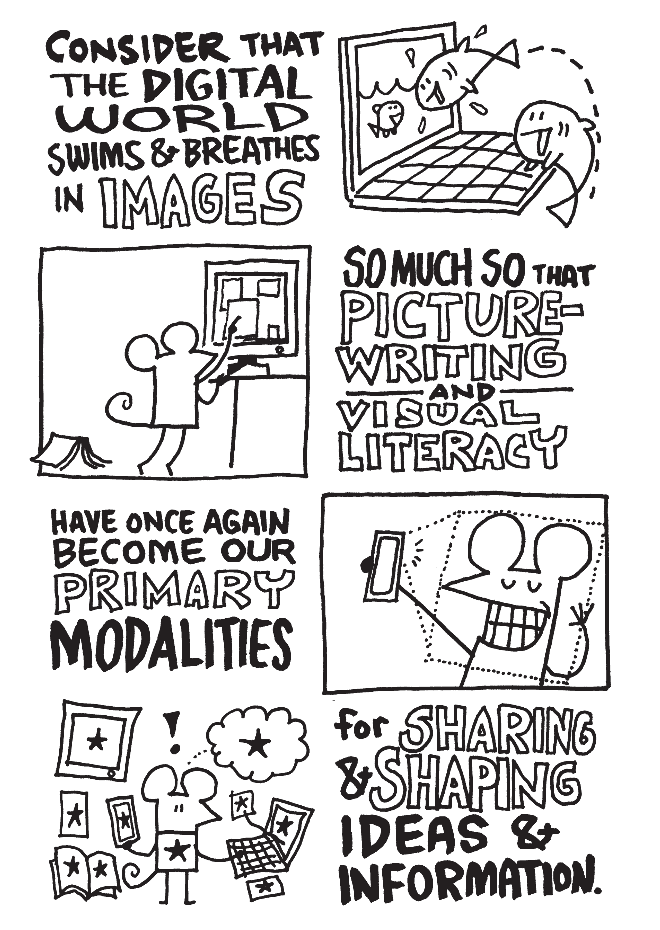 CONSIDER THAT
THE DIGITAL
WORLD
SWIMS & BREATHES
IN IMAGES
SO MUCH SO THAT
PICTURE-
WRITING
AND
VISUAL
LITERACY
HAVE ONCE AGAIN
BECOME OUR
PRIMARY
MODALITIES
!
for SHARING
& SHAPING
IDEAS &
INFORMATION.